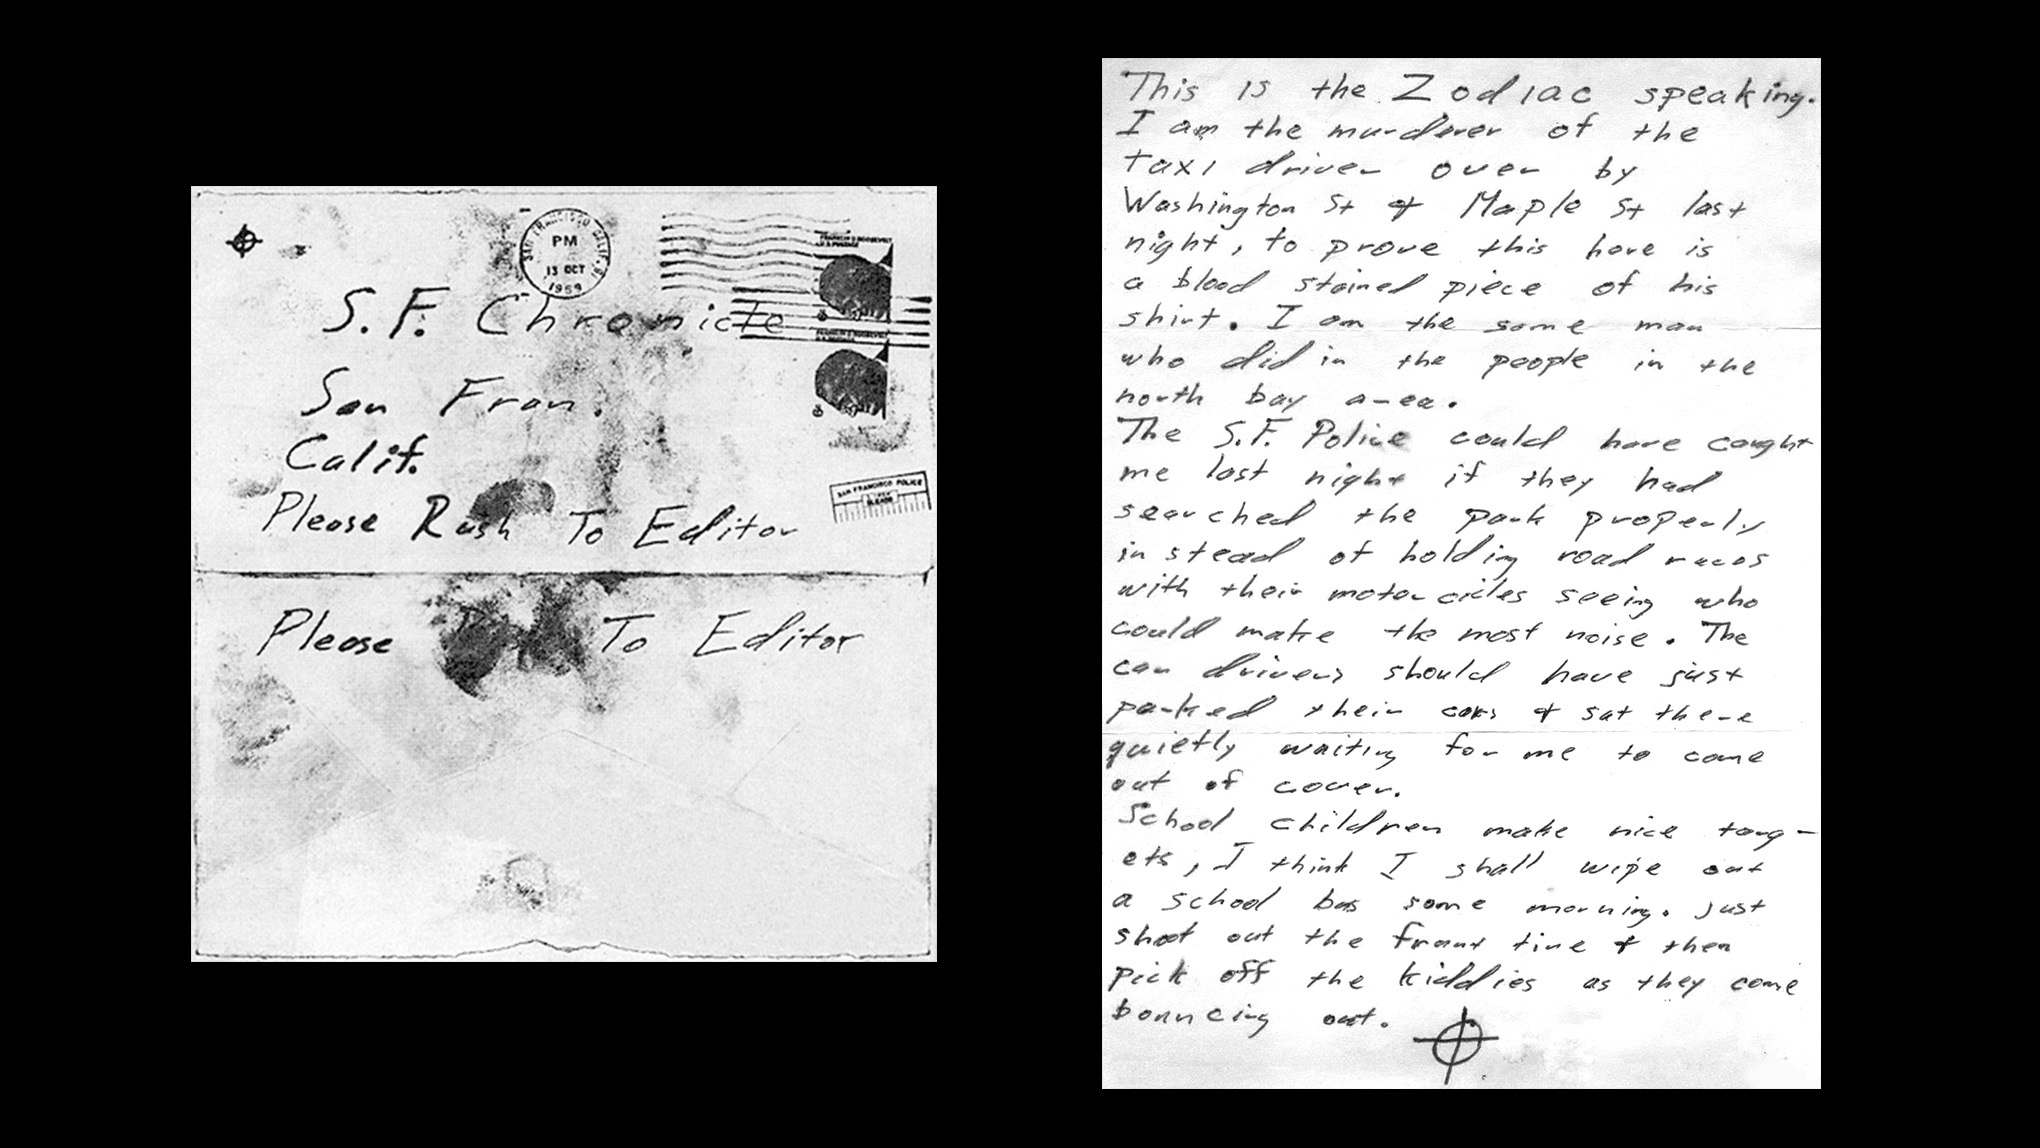 SAN FRANCISCO CALIF.
PM
13 OCT
1969
FRANKLIN D. ROOSEVELT
U.S. POSTAGE
S.F. Chronicle
FRANKLIN D. ROOSEVELT
San Fran.
Calif.
SAN FRANCISCO POLICE
Please Rush To Editor
Please To Editor
This is the Zodiac speaking.
I am the murderer of the
taxi driver over by
Washington St & Maple St last
night, to prove this here is
a blood stained piece of his
shirt. I am the same man
who did in the people in the
north bay area.
The S.F. Police could have caught
me last night if they had
searched the park properly
in stead of holding road races
with their motorcicles seeing who
could make the most noise. The
car drivers should have just
parked their cars & sat there
quietly waiting for me to come
out of cover.
School children make nice targ-
ets, I think I shall wipe out
a school bus some morning. Just
shoot out the front tire & then
pick off the kiddies as they come
bouncing out.